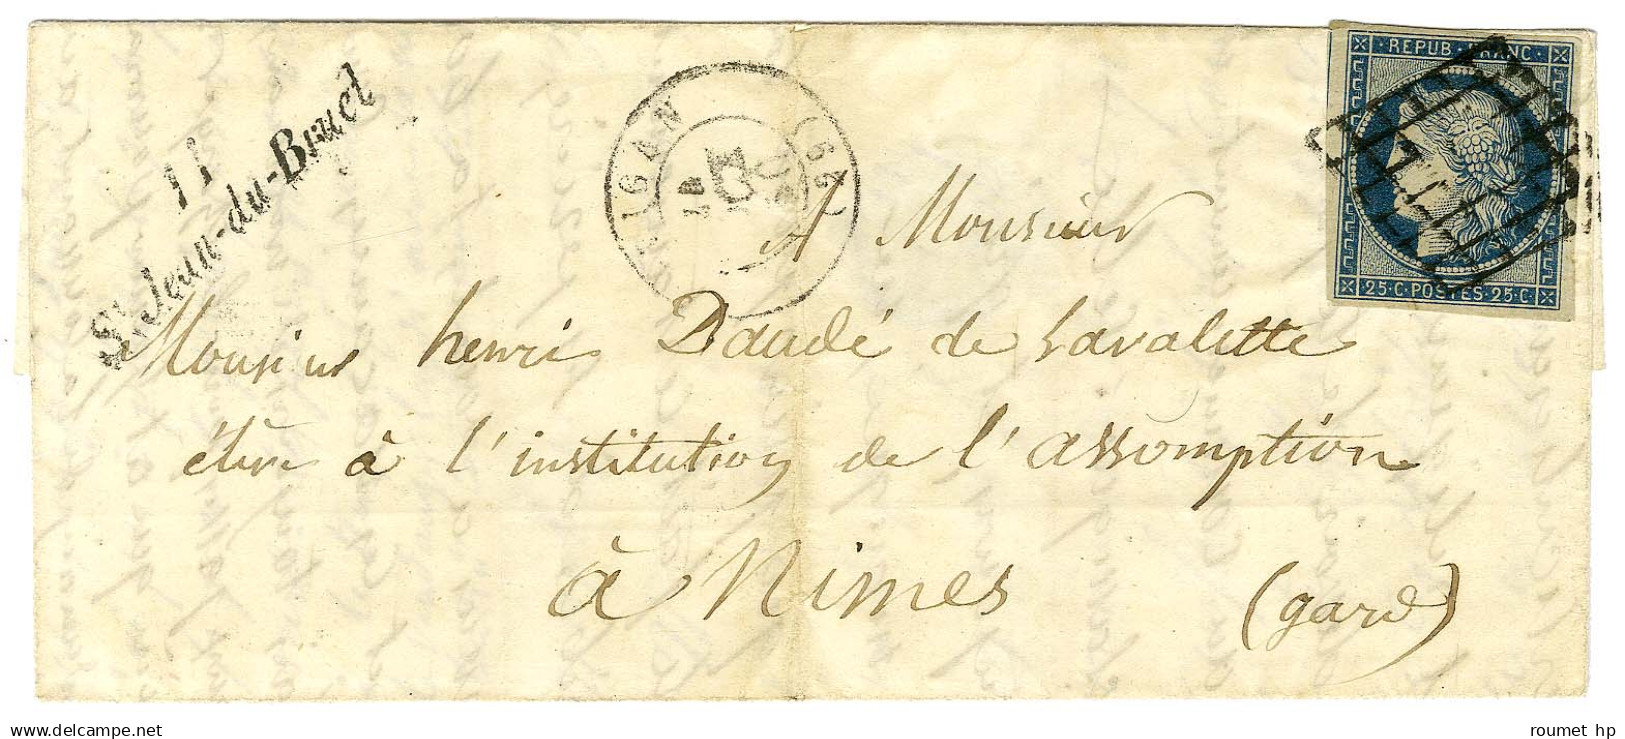 REPUB·FRANC
25·C·POSTES·25·C
11
St Jean-du-Bruel
(29)
A Monsieur
Monsieur henri Daudé de Lavalette
élève à l'institution de l'assomption
à Nimes (gard)
roumet hp